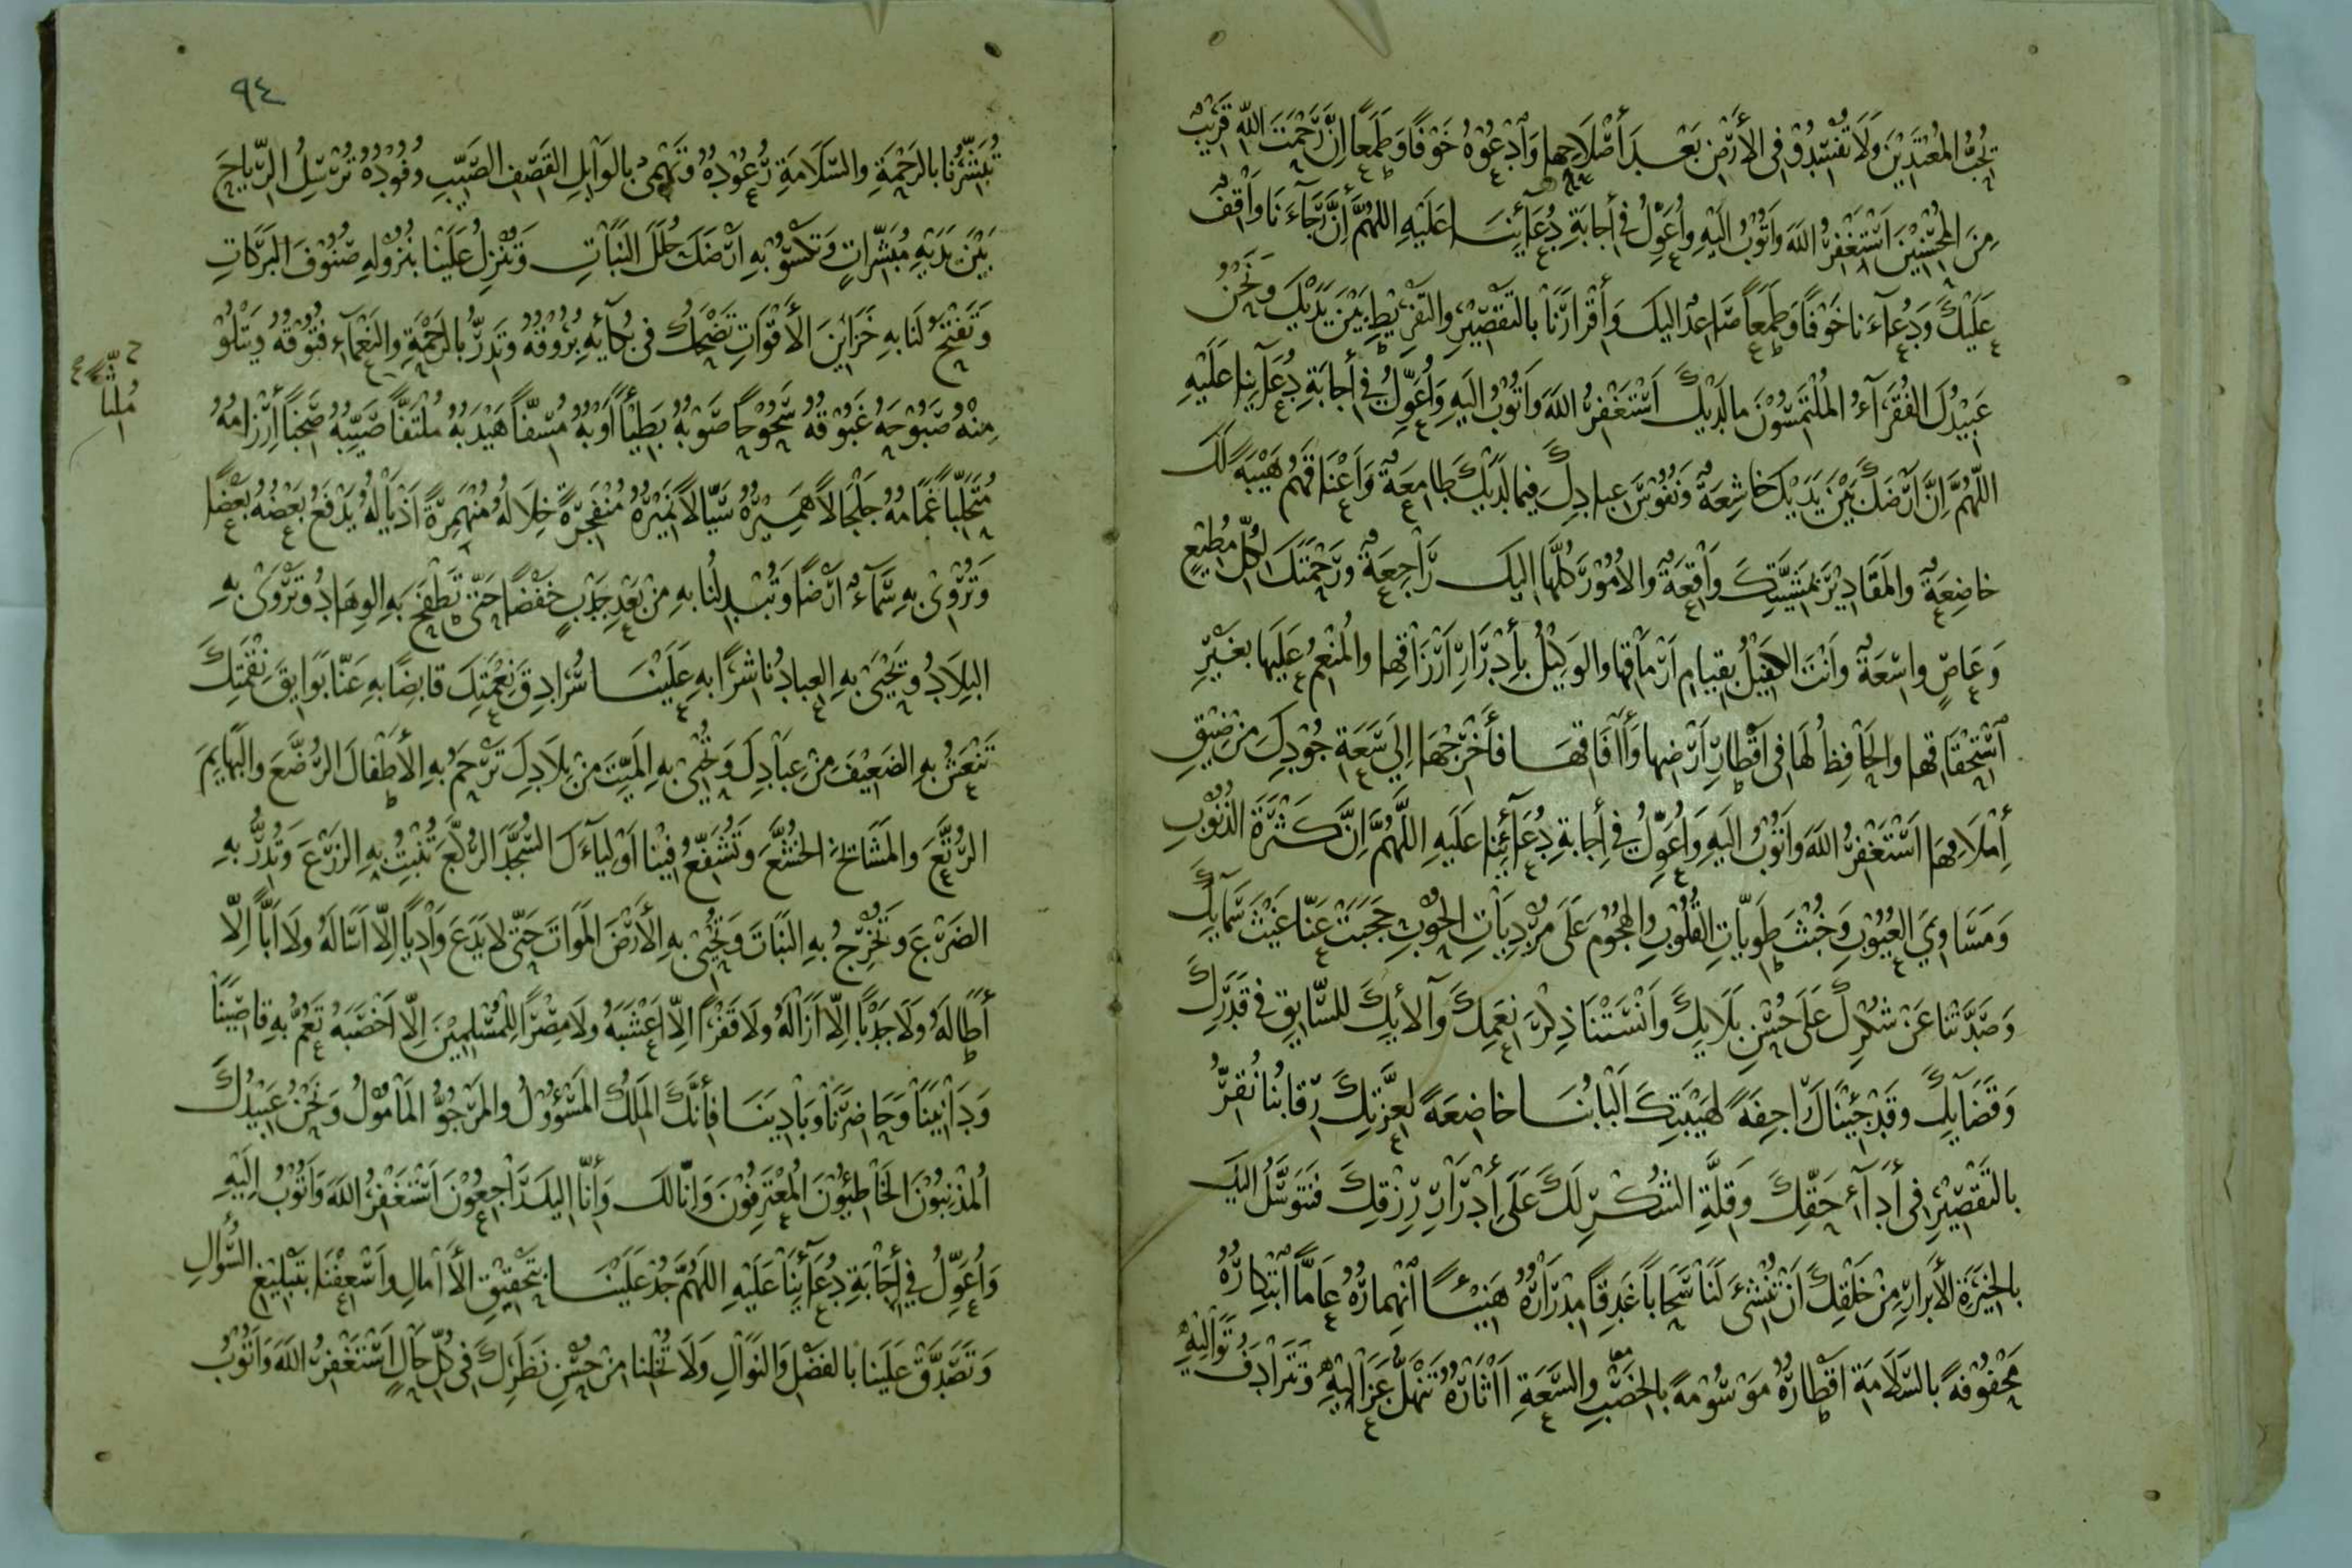 يُحِبُّ المُعْتَدِيْنَ وَلَا تُفْسِدُوْا فِي الأَرْضِ بَعْدَ أَصْلَاحِهَا وَاَدْعُوْهُ خَوْفًا وَطَمَعًا اِنَّ رَحْمَتَ اللّٰهِ قَرِيْبٌ
مِنَ المُحْسِنِيْنَ اَسْتَغْفِرُ اللّٰهَ وَاَتُوْبُ اِلَيْهِ وَاُعَوِّلُ فِي أِجَابَةِ دُعَآئِنَا عَلَيْهِ اللّهُمَّ أِنَّ رَجَآءَنَا وَاقِفٌ
عَلَيْكَ وَدُعَآءَنَا خَوْفًا وَطَمَعًا صَاعِدٌ اليكَ وَأِقْرَارَنَا بِالتَقْصِيْرِ وَالتَفْرِيْطِ بَيْنَ يَدَيْكَ وَنَحْنُ
عَبِيْدُكَ الفُقَرَآءُ المُلْتَمِسُوْنَ مَا لَدَيْكَ اَسْتَغْفِرُ اللّٰهَ وَاَتُوْبُ اِلَيْهِ وَاُعَوِّلُ فِي أِجَابَةِ دُعَآئِنَا عَلَيْهِ
اللّهُمَّ اِنَّ اَرْضَكَ بَيْنَ يَدَيْكَ خَاشِعَةٌ وَنُفُوْسَ عِبَادِكَ فِيمَا لَدَيْكَ طَامِعَةٌ وَاَعْنَاقَهُمْ هَيْبَةً لَكَ
خَاضِعَةٌ والمَقَادِيْرَ بِمَشِيَّتِكَ وَاقِعَةٌ والاُمُوْرَ كُلَّهَا اِليكَ رَاجِعَةٌ ورَحْمَتَكَ لِكُلِّ مُطِيْعٍ
وَعَاصٍ وَاسِعَةٌ وَاَنْتَ الكَفِيْلُ بِقِيَامِ اَرْمَاقِهَا والوَكِيْلُ بِأِدْرَارِ اَرْزَاقِهَا والمُنْعِمُ عَلَيْهَا بِغَيْرِ
اَسْتِحْقَاقِهَا والحَافِظُ لَهَا فِي اَقْطَارِ اَرْضِهَا وَأَافَاقِهَا فَأَخْرِجْهَا اِلَي سَعَةِ جُوْدِكَ مِنْ ضِيْقِ
أِمْلَاقِهَا اَسْتَغْفِرُ اللّٰهَ وَاَتُوْبُ اِلَيْهِ وَاُعَوِّلُ فِي أِجَابَةِ دُعَآئِنَا عَلَيْهِ اللّهُمَّ اِنَّ كَثْرَةَ الذُنُوْبِ
وَمَسَاوِيَ العُيُوْبِ وَخُبْثَ طَوِيَّاتِ القُلُوْبِ والهُجُوْمَ عَلَى مُرْدِيَاتِ الحُوْبِ حَجَبَتْ عَنَّا غَيْثَ سَمَآئِكَ
وَصَدَّتْنَا عَنْ شُكْرِكَ عَلَى حُسْنِ بَلَايِكَ وَاَنْسَتْنَا ذِكْرَ نِعَمِكَ وَآلَايِكَ لِلسَّابِقِ فِي قَدَرِكَ
وَقَضَآيِكَ وقَدْ جِئْنَاكَ رَاجِفَةً لِهَيْبَتِكَ اَلْبَابُنَا خَاضِعَةً لِعِزَّتِكَ رِقَابُنَا نُقِرُّ
بِالتَقْصِيْرِ فِي أَدَآءِ حَقِّكَ وَقِلَّةِ الشُكْرِ لَكَ عَلَى أِدْرَارِ رِزْقِكَ فَنَتَوَسَّلُ اليْكَ
بِالخِيَرَةِ الأَبْرَارِ مِنْ خَلْقِكَ اَنْ تُنْشِئَ لَنَا سَحَابًا غَدِقًا مِدْرَارُهُ هَنِيْئًا اَنْهِمَارُهُ عَامًّا اَبْتِكَارُهُ
مَحْفُوْفَةً بِالسَّلَامَةِ اَقْطَارُهُ مَوْسُوْمَةً بِالخِصْبِ والسَّعَةِ اَاثَارُهُ تَنْهَلُّ عَزَالِيْهِ وَتَتَرَادَفُ تَوَالِيْهِ
٩٤
تُبَشِّرُنَا بِالرَحْمَةِ والسَّلَامَةِ رُعُوْدُهُ وَتَهْمِيْ بِالوَابِلِ القَصِفِ الصَيِّبِ وُفُوْدُهُ تُرْسِلُ الرِّيَاحَ
بَيْنَ يَدَيْهِ مُبَشِّرَاتٍ وَتَكْسُوْ بِهِ اَرْضَكَ حُلَلَ النَبَاتِ وَتُنْزِلُ عَلَيْنَا بِنُزُوْلِهِ صُنُوْفَ البَرَكَاتِ
وَتَفْتَحُ لَنَا بِهِ خَزَايِنَ الأَقْوَاتِ تَضْحَكُ فِي بُكَآيِهِ بُرُوْقُهُ وَتَدِرُّ بِالرَحْمَةِ والنَعْمَآءِ فُتُوْقُهُ وَيَتْلُوْ
مِنْهُ صَبُوْحَهُ غَبُوْقُهُ سَحُوْحًا صَوْبُهُ بَطِيْأً اَوْبُهُ مُسِفًّا هَيْدَبُهُ مُلْتَفًّا صَيِّبُهُ صَخِبًا أِرْزَامُهُ
مُتَحَلِّبًا غَمَامُهُ جَلْجَالاً هَمِيْرُهُ سَيَّالاً نَمِيْرُهُ مُنْفَجِرَةً خِلَالُهُ مُنْهَمِرَةً اَذْيَالُهُ يَدْفَعُ بَعْضُهُ بَعْضًا
مُلِثًّا
وَتُرْوِيْ بِهِ سَمَآءٌ اَرْضًا وَتُبْدِلُنَا بِهِ مِنْ بَعْدِ جَدْبٍ خَفْضًا حَتَّى تَطْفَحَ بِهِ الوِهَادُ وَتَرْوَى بِهِ
البِلَادُ وَتَحْيَى بِهِ العِبَادُ نَاشِرًا بِهِ عَلَيْنَا سُرَادِقَ نِعْمَتِكَ قَابِضًا بِهِ عَنَّا بَوَايِقَ نِقْمَتِكَ
تَنْعَشُ بِهِ الضَعِيْفَ مِنْ عِبَادِكَ وَتُحْيِيْ بِهِ المَيِّتَ مِنْ بِلَادِكَ تَرْحَمُ بِهِ الأَطْفَالَ الرُضَّعَ والبَهَايِمَ
الرُتَّعَ والمَشَائِخَ الخُشَّعَ وَتُشَفِّعُ فِيْنَا اَوْلِيَآءَكَ السُجَّدَ الرُكَّعَ تُنْبِتُ بِهِ الزَرْعَ وَتُدِرُّ بِهِ
الضَرْعَ وَتُخْرِجُ بِهِ النَبَاتَ وَتُحْيِيْ بِهِ الأَرْضَ المَوَاتَ حَتَّى لَا يَدَعَ وَادِيًا اِلّا اَسَالَهُ وَلَا اَبًّا اِلَّا
أَطَالَهُ وَلَا جَدْبًا اِلّا اَزَالَهُ وَلَا قَفْرًا اِلَّا اَعْشَبَهُ وَلَا مِصْرًا لِلْمُسْلِمِيْنَ اِلّا اَخْصَبَهُ تَعُمُّ بِهِ قَاصِيَنَا
وَدَانِيَنَا وَحَاضِرَنَا وَبَادِيَنَا فَأَنَّكَ المَلِكُ المَسْؤُوْلُ والمَرْجُوُّ المَأْمُوْلُ وَنَحْنُ عَبِيْدُكَ
المُذْنِبُوْنَ الخَاطِئُوْنَ المُعْتَرِفُوْنَ وَاِنَّا لَكَ وَأِنَّا اِلَيْكَ رَاجِعُوْنَ اَسْتَغْفِرُ اللّٰهَ وَاَتُوْبُ اِلَيْهِ
وَاُعَوِّلُ فِي أِجَابَةِ دُعَآئِنَا عَلَيْهِ اللّهُمَّ جُدْ عَلَيْنَا بِتَحْقِيْقِ الأَامَالِ وَاَسْعِفْنَا بِتَبْلِيْغِ السُّؤَالِ
وَتَصَدَّقْ عَلَيْنَا بِالفَضْلِ وَالنَوَالِ وَلَا تُخْلِنَا مِنْ حُسْنِ نَظَرِكَ فِي كُلِّ حَالٍ اَسْتَغْفِرُ اللّٰهَ وَاَتُوْبُ